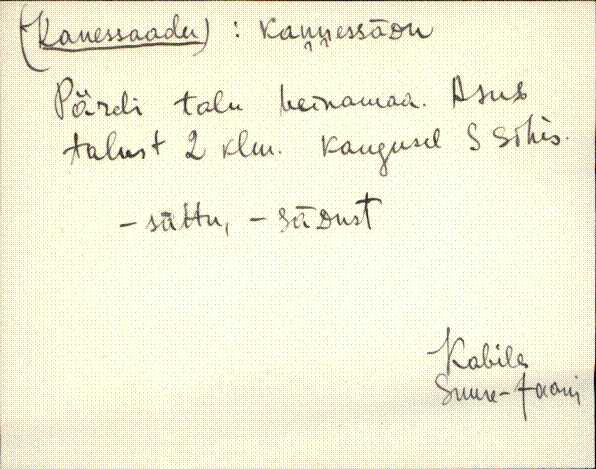 (Kanessaadu) : kaṇṇessāDu
Pärdi talu heinamaa. Asub
talust 2 klm. kaugusel S sihis.
- sāttu, - sāDust
Kabila
Suure-Jaani